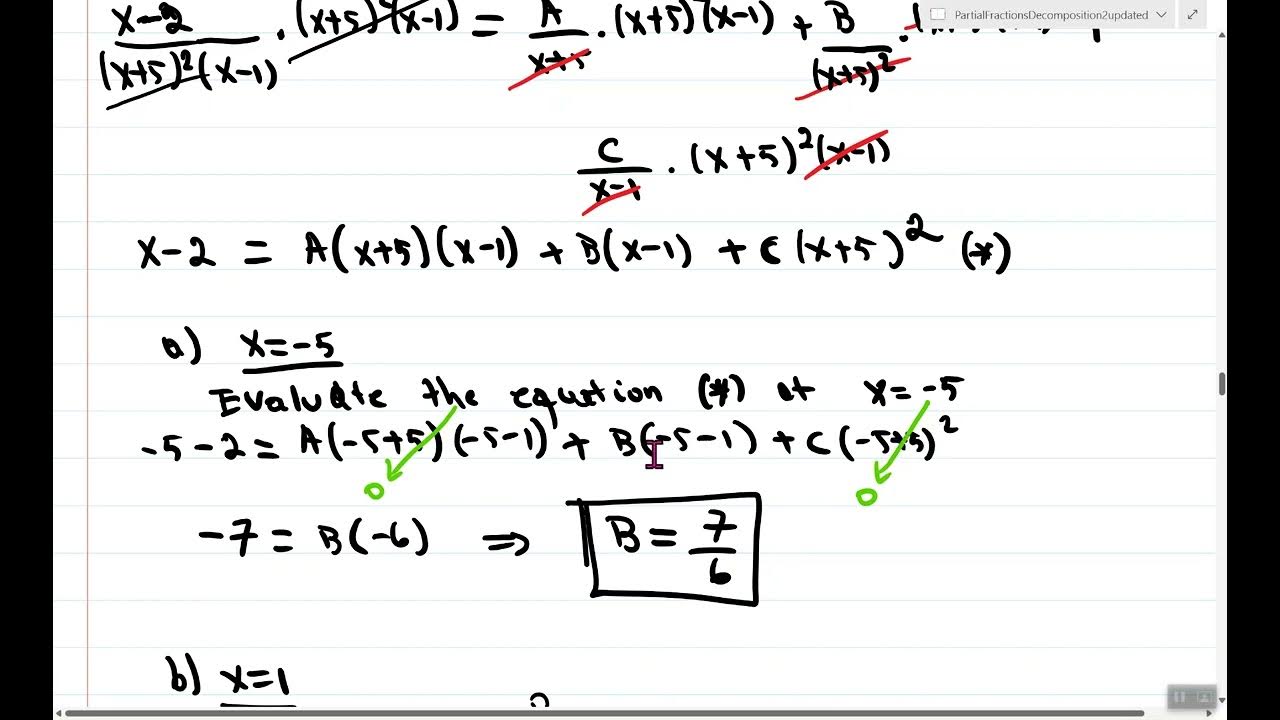 PartialFractionsDecomposition2updated
x-2/(x+5)²(x-1) · (x+5)²(x-1) = A/x+5 · (x+5)²(x-1) + B/(x+5)² ·
C/x-1 · (x+5)²(x-1)
x-2 = A(x+5)(x-1) + B(x-1) + C(x+5)² (*)
a) x=-5
Evaluate the equation (*) at x=-5
-5-2 = A(-5+5)(-5-1) + B(-5-1) + C(-5+5)²
0 0
-7 = B(-6) ⇒ B = 7/6
b) x=1
2